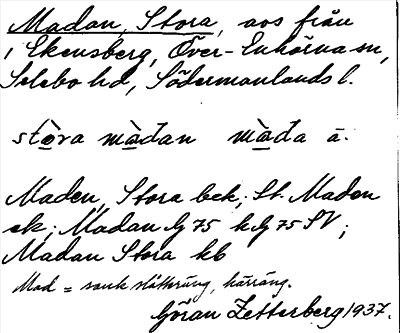 Madan, Stora, aos från
i Ekensberg, Över-Enhörna sn,
Selebo hd, Södermanlands l.
stòra màđan màđa ā.
Maden, Stora bek; St. Maden
ek; Madan G 75 kG 75 SV;
Madan Stora kb
Mad = sank slåtteräng, kärräng.
Göran Zetterberg 1937.